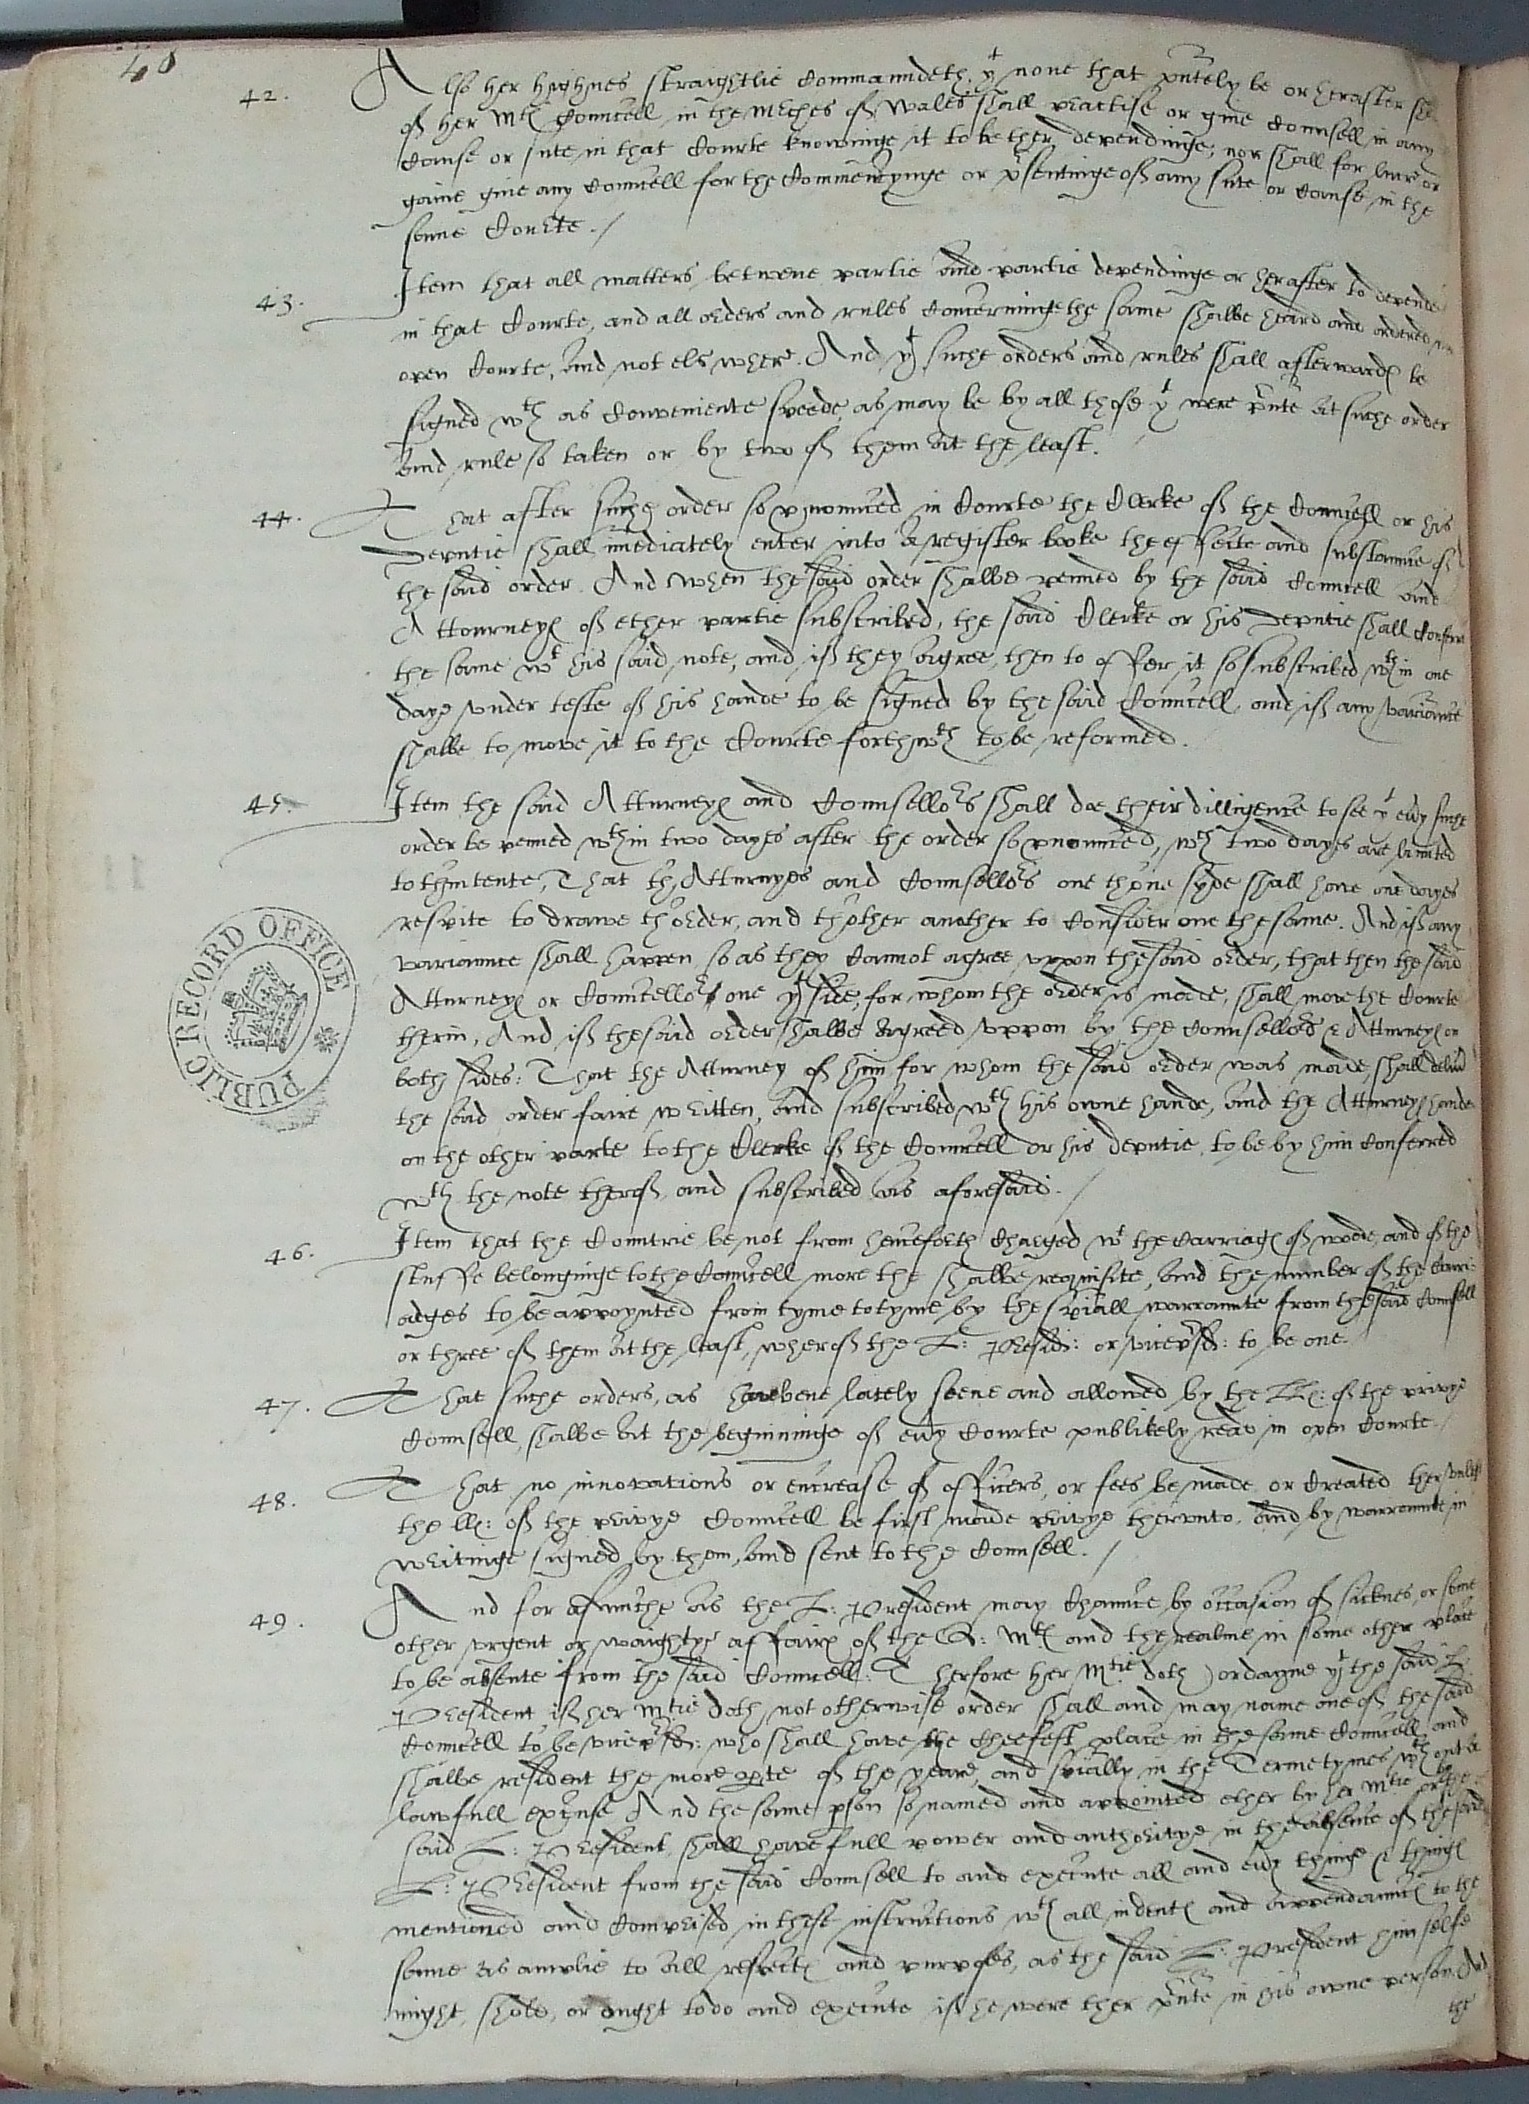 40
42. Also her highnes straightlie Commaundeth, yt none that pntely be or heraftr
of her Mts Councell in the Mches of Wales shall practise or give Counsell in any
Cause or sute in that Courte knowinge it to be ther dependinge, nor shall for lucre or
gaine give any Councell for the Commencynge or psentinge of any sute or Cause in the
same Courte. /
43. Item that all matters betwene partie and partie dependinge or herafter to depende
in that Courte, and all orders and rules Concerninge the same shalbe heard and ordered in
open Courte, and not els wher. And yt suche orders and rules shall afterwards be
signed wth as Conveniente speede as may be by all those yt were pnte at suche order
and rule so taken or by two of them at the least.
44. That after suche order so pnounced in Courte the Clerke of the Councell or his
Deputie shall imediately enter into a register booke the effecte and substaunce of
the said order. And when the said order shalbe penned by the said Councell and
Attourneys of ether partie subscribed, the said Clerke or his Deputie shall Conferre
the same wt his said note, and if they agree, then to offer it so subscribed wthin one
daye under teste of his hande to be signed by the said Councell and if any variance
shalbe to move it to the Courte forthwth to be reformed.
45. Item the said Atturneys and Counsellors shall doe their dilligence to see yt evry suche
order be penned wthin two dayes after the order so pnounced, wch two dayes are limited
to thintente, That th Atturnyes and Counsellors one thone syde shall have one dayes
respite to drawe thorder, and thother another to Consider one the same. And if any
variaunce shall happen so as they Cannot agree uppon the said order, that then the said
Atturneys or Councellors one yt side, for whom the order is made, shall move the Courte
therin, And if the said order shalbe agreed uppon by the Counsellors & Atturneys on
both sides: That the Atturney of him for whom the said order was made, shall delivr
the said order faire written, and subscribed wth his owne hande, and the Atturneys hande
on the other parte to the Clerke of the Councell or his deputie, to be by him Conferred
wth the note therof, and subscribed as aforesaid. /
46. Item that the Countrie be not from henceforth Charged wt the Carriags of wode, and of the
stuffe belonginge to the Councell more the shalbe requisite, and the number of the Carri-
adges to be appoynted from tyme to tyme by the spiall warraunte from the said Counsell
or three of them at the least, wherof the L: Presid: or vicepsid: to be one.
47. That suche orders, as have bene lately seene and allowed by the LLs: of the privye
Counsell, shalbe at the beginninge of evry Courte publikely read in open Courte. /
48. That no innovations or encrease of officers, or fees be made or Created ther unles
the lls: of the privye Councell be first made privye therunto, and by warraunte in
writinge signed by them, and sent to the Counsell. /
49. And for asmuche as the L: President may Chaunce by occasion of sicknes, or some
other urgent or waightye affairs of the Q: Mts and the realme in some other place
to be absente from the said Councell: Therfore her Mtie doth ordayne yt the said L:
President if her Mtie doth not otherwise order shall and may name one of the said
Councell to be vicepsid: who shall have the cheefest place in the same Councell and
shalbe resident the more pte of the yeare, and spially in the Terme tymes wthout a
lawfull excuse And the same pson so named and appointed ether by her Mtie or the
said L: President, shall have full power and authoritye in the absence of the said
L: President from the said Counsell to and execute all and evry thinge & things
mentioned and Comprised in these instructions wth all indents and appendaunts to the
same as amplie to all respects and purposes, as the said L: President him selfe
might, shold, or ought to do and execute if he were ther pnte in his owne person. And
the
PUBLIC RECORD OFFICE